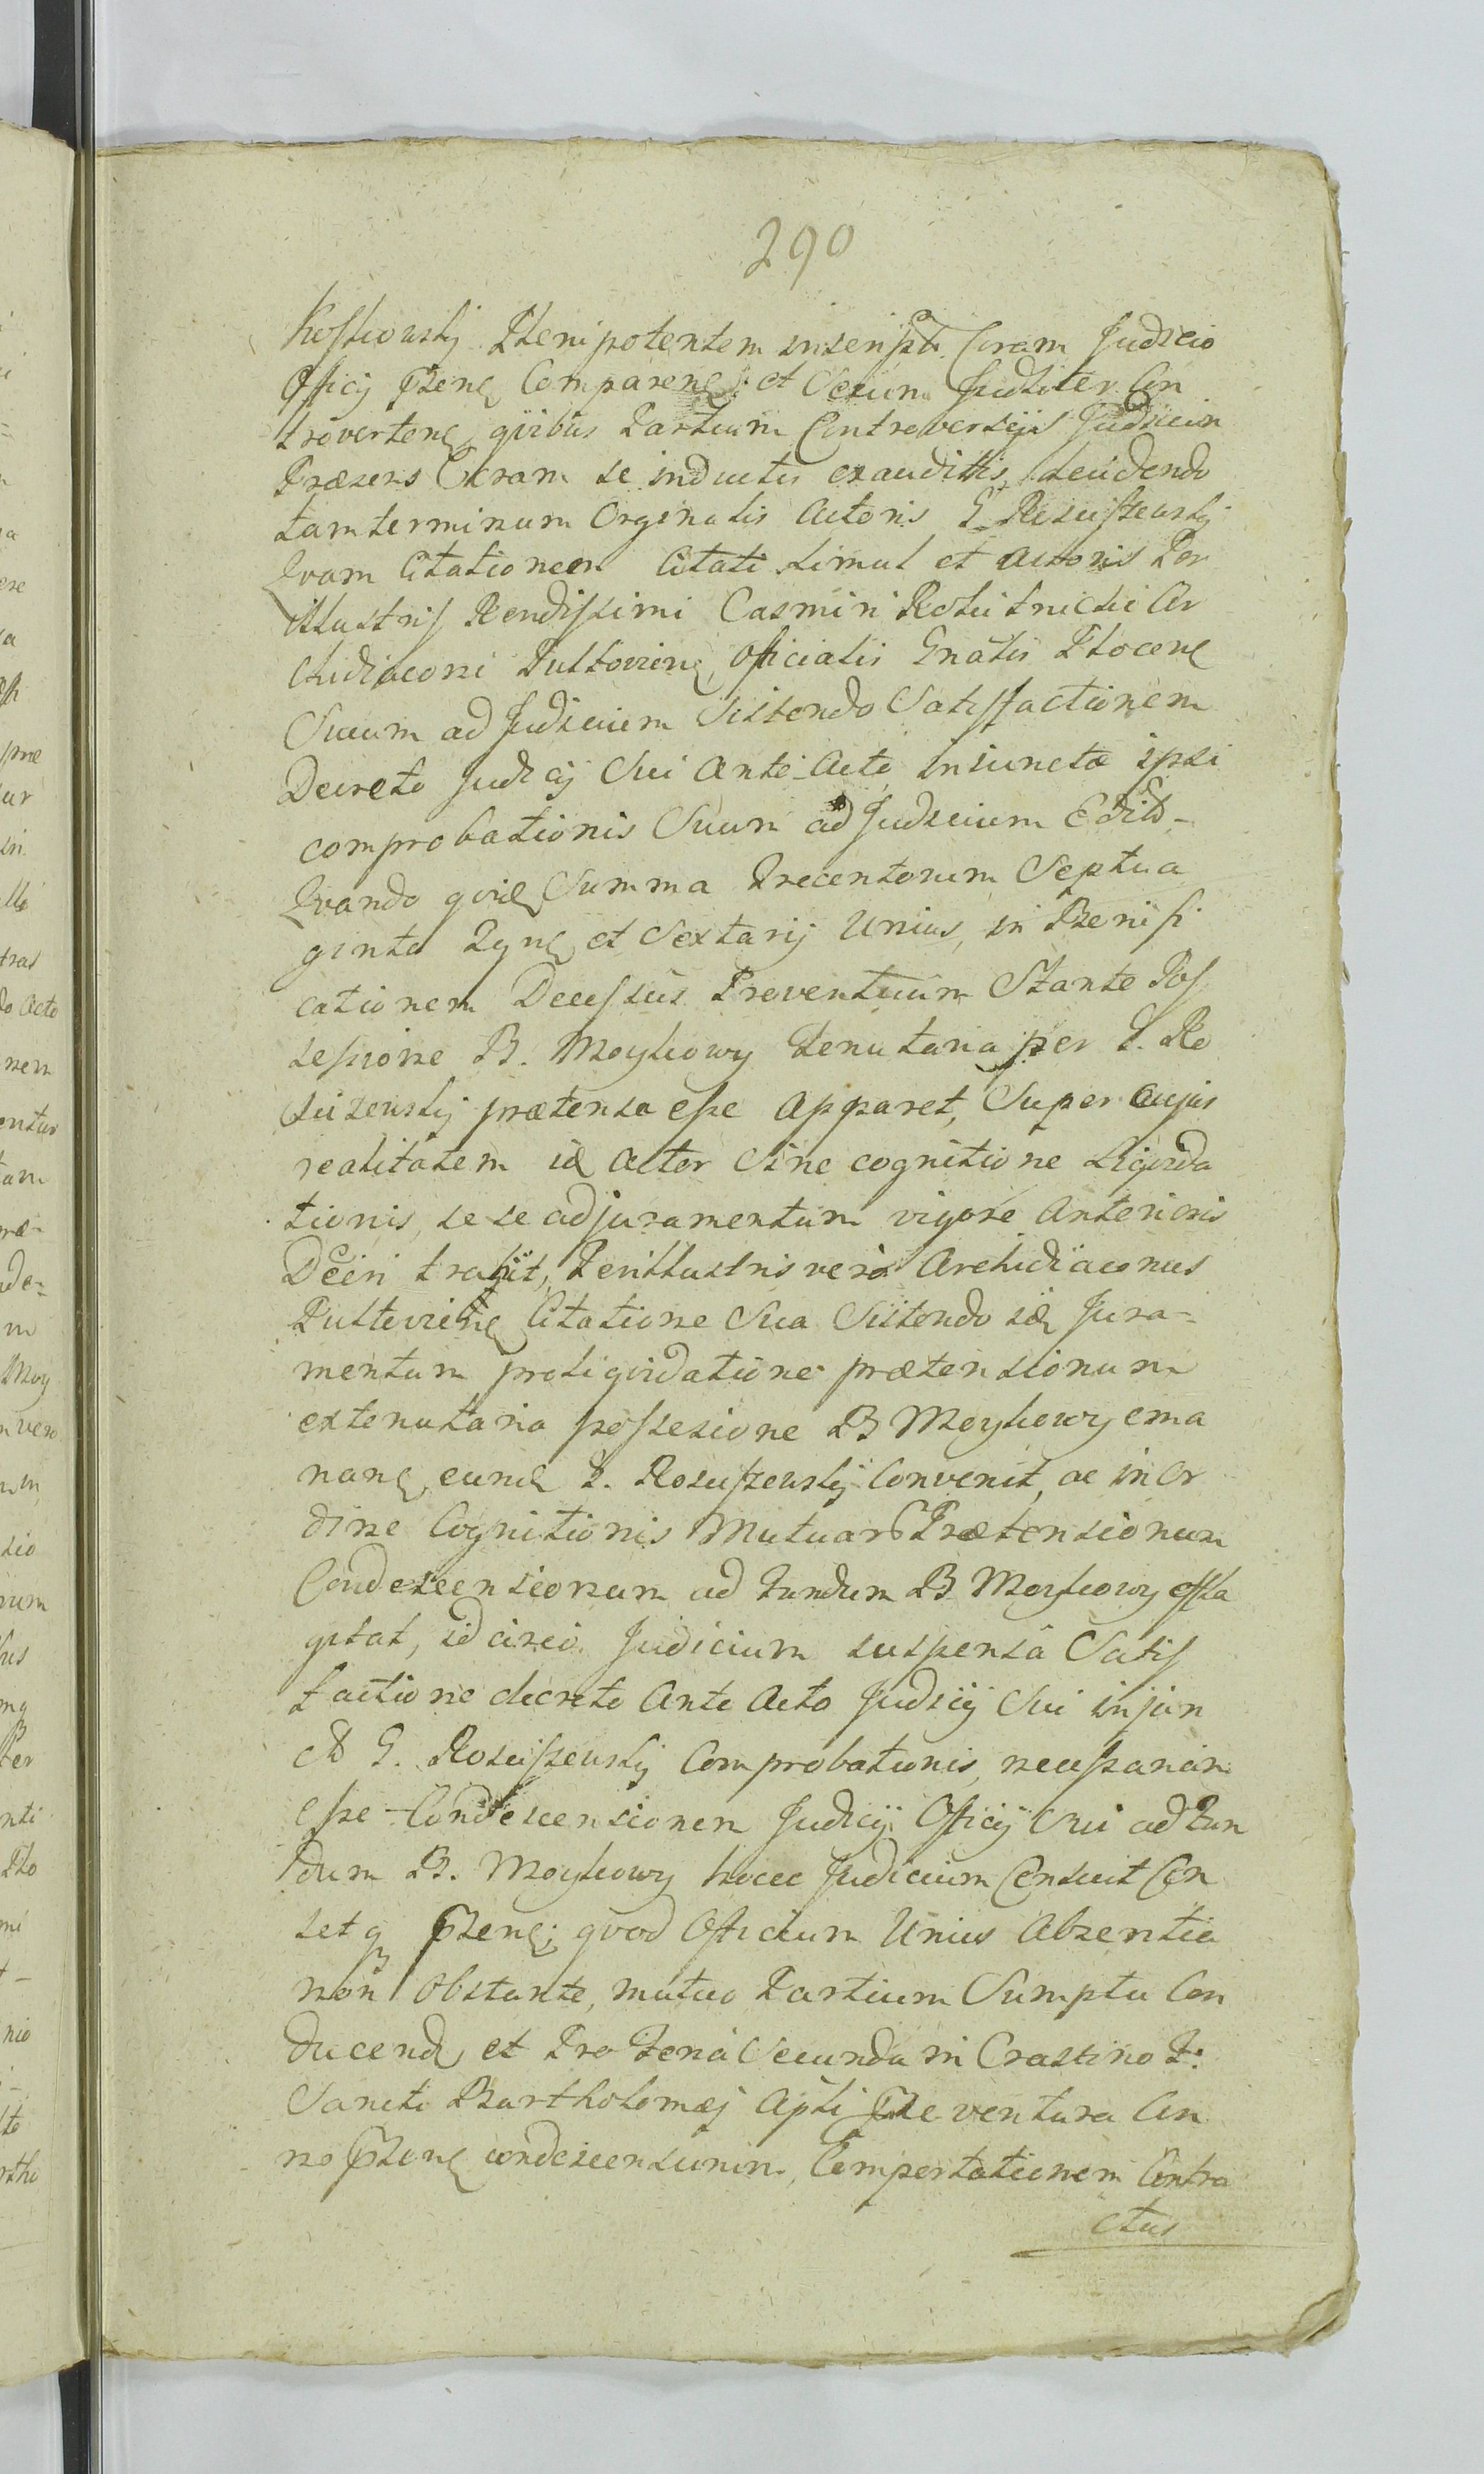 290
Kossowskij Plenipotentem inscripti Coram Judicio
Officij Pzenɋ Comparenɋ: et Secum Judliter Con
trovertenɋ, qvibus Partium Controversijs Judicium
Præsens Coram se inductis exauditis, studendo
tam terminum Orginalis Actoris G. Rosciszewskij
Qvam Citationem Citati simul et Actoris Per
illustris Rendissimi Casmiri Rokitnicki Ar
chidiaconi Pultovienɋ, Officialis Gnalis Plocenɋ
Suum ad Judicium Sistendo Satisfactionem
Decreto Judicij Sui Ante Acto injuncta ipsi
comprobationis Suum ad Judicium Edito
Qvando qvidɋ Summa Trecentorum Septua
ginta et Sextarij Unius, in Bonifi
cationem Decessus Proventuum Stante Pos
sessione B. Moykowy tenutaria per G. Ro
sciszewskij prætensa esse Apparet, Super Cujus
realitatem id Actor Sine cognitione Liqvida
tionis, sese adjuramentum vigore Anterioris
Decri trahit, Perillustris vero Archidiaconus
Pultovienɋ Citatione Sua Sistendo id Jura-
mentum proliqvidatione prætensionum
extenutaria possesione B Moykowy ema
nanɋ eundɋ G. Rosciszewskij Convenit, ac in Or
dine Cognitionis Mutuar Prætensionum
Condescensionem ad Fundum B Moykowy effla
gitat, idcirco Judicium suspensa Satis
factione decreto Ante Acto Judicij Sui injun
cta G. Rosciszewskij Comprobationis, necessariam
esse Condescensionem Judicij Officij Sui ad Fun
dum B. Moykowy hocce Judicium Censuit Cen
setq Pzenɋ; qvod Officium Unius Absentia
non Obstante, mutuo Partium Sumptu Con
ducendɋ et Pro Feria Secunda in Crastino F:
Sancti Bartholomæj Apli Pzeventura An
no Pzenɋ condescensurum, Comportationem Contra
ctus